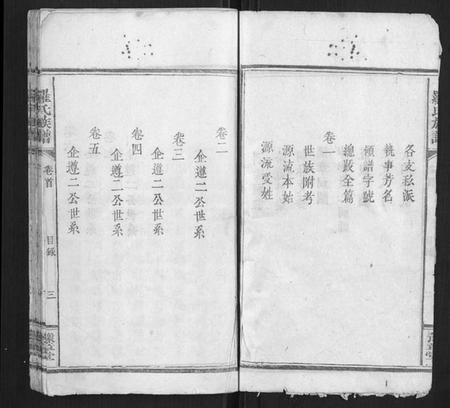 羅氏族譜
各支秘派
執事芳名
領譜字號
總跋全篇
卷一
世族附考
源流本始
源流受姓
卷二
企遵二公世系
卷三
企遵二公世系
卷四
企遵二公世系
卷五
企遵二公世系
羅氏族譜
卷首
目錄
三